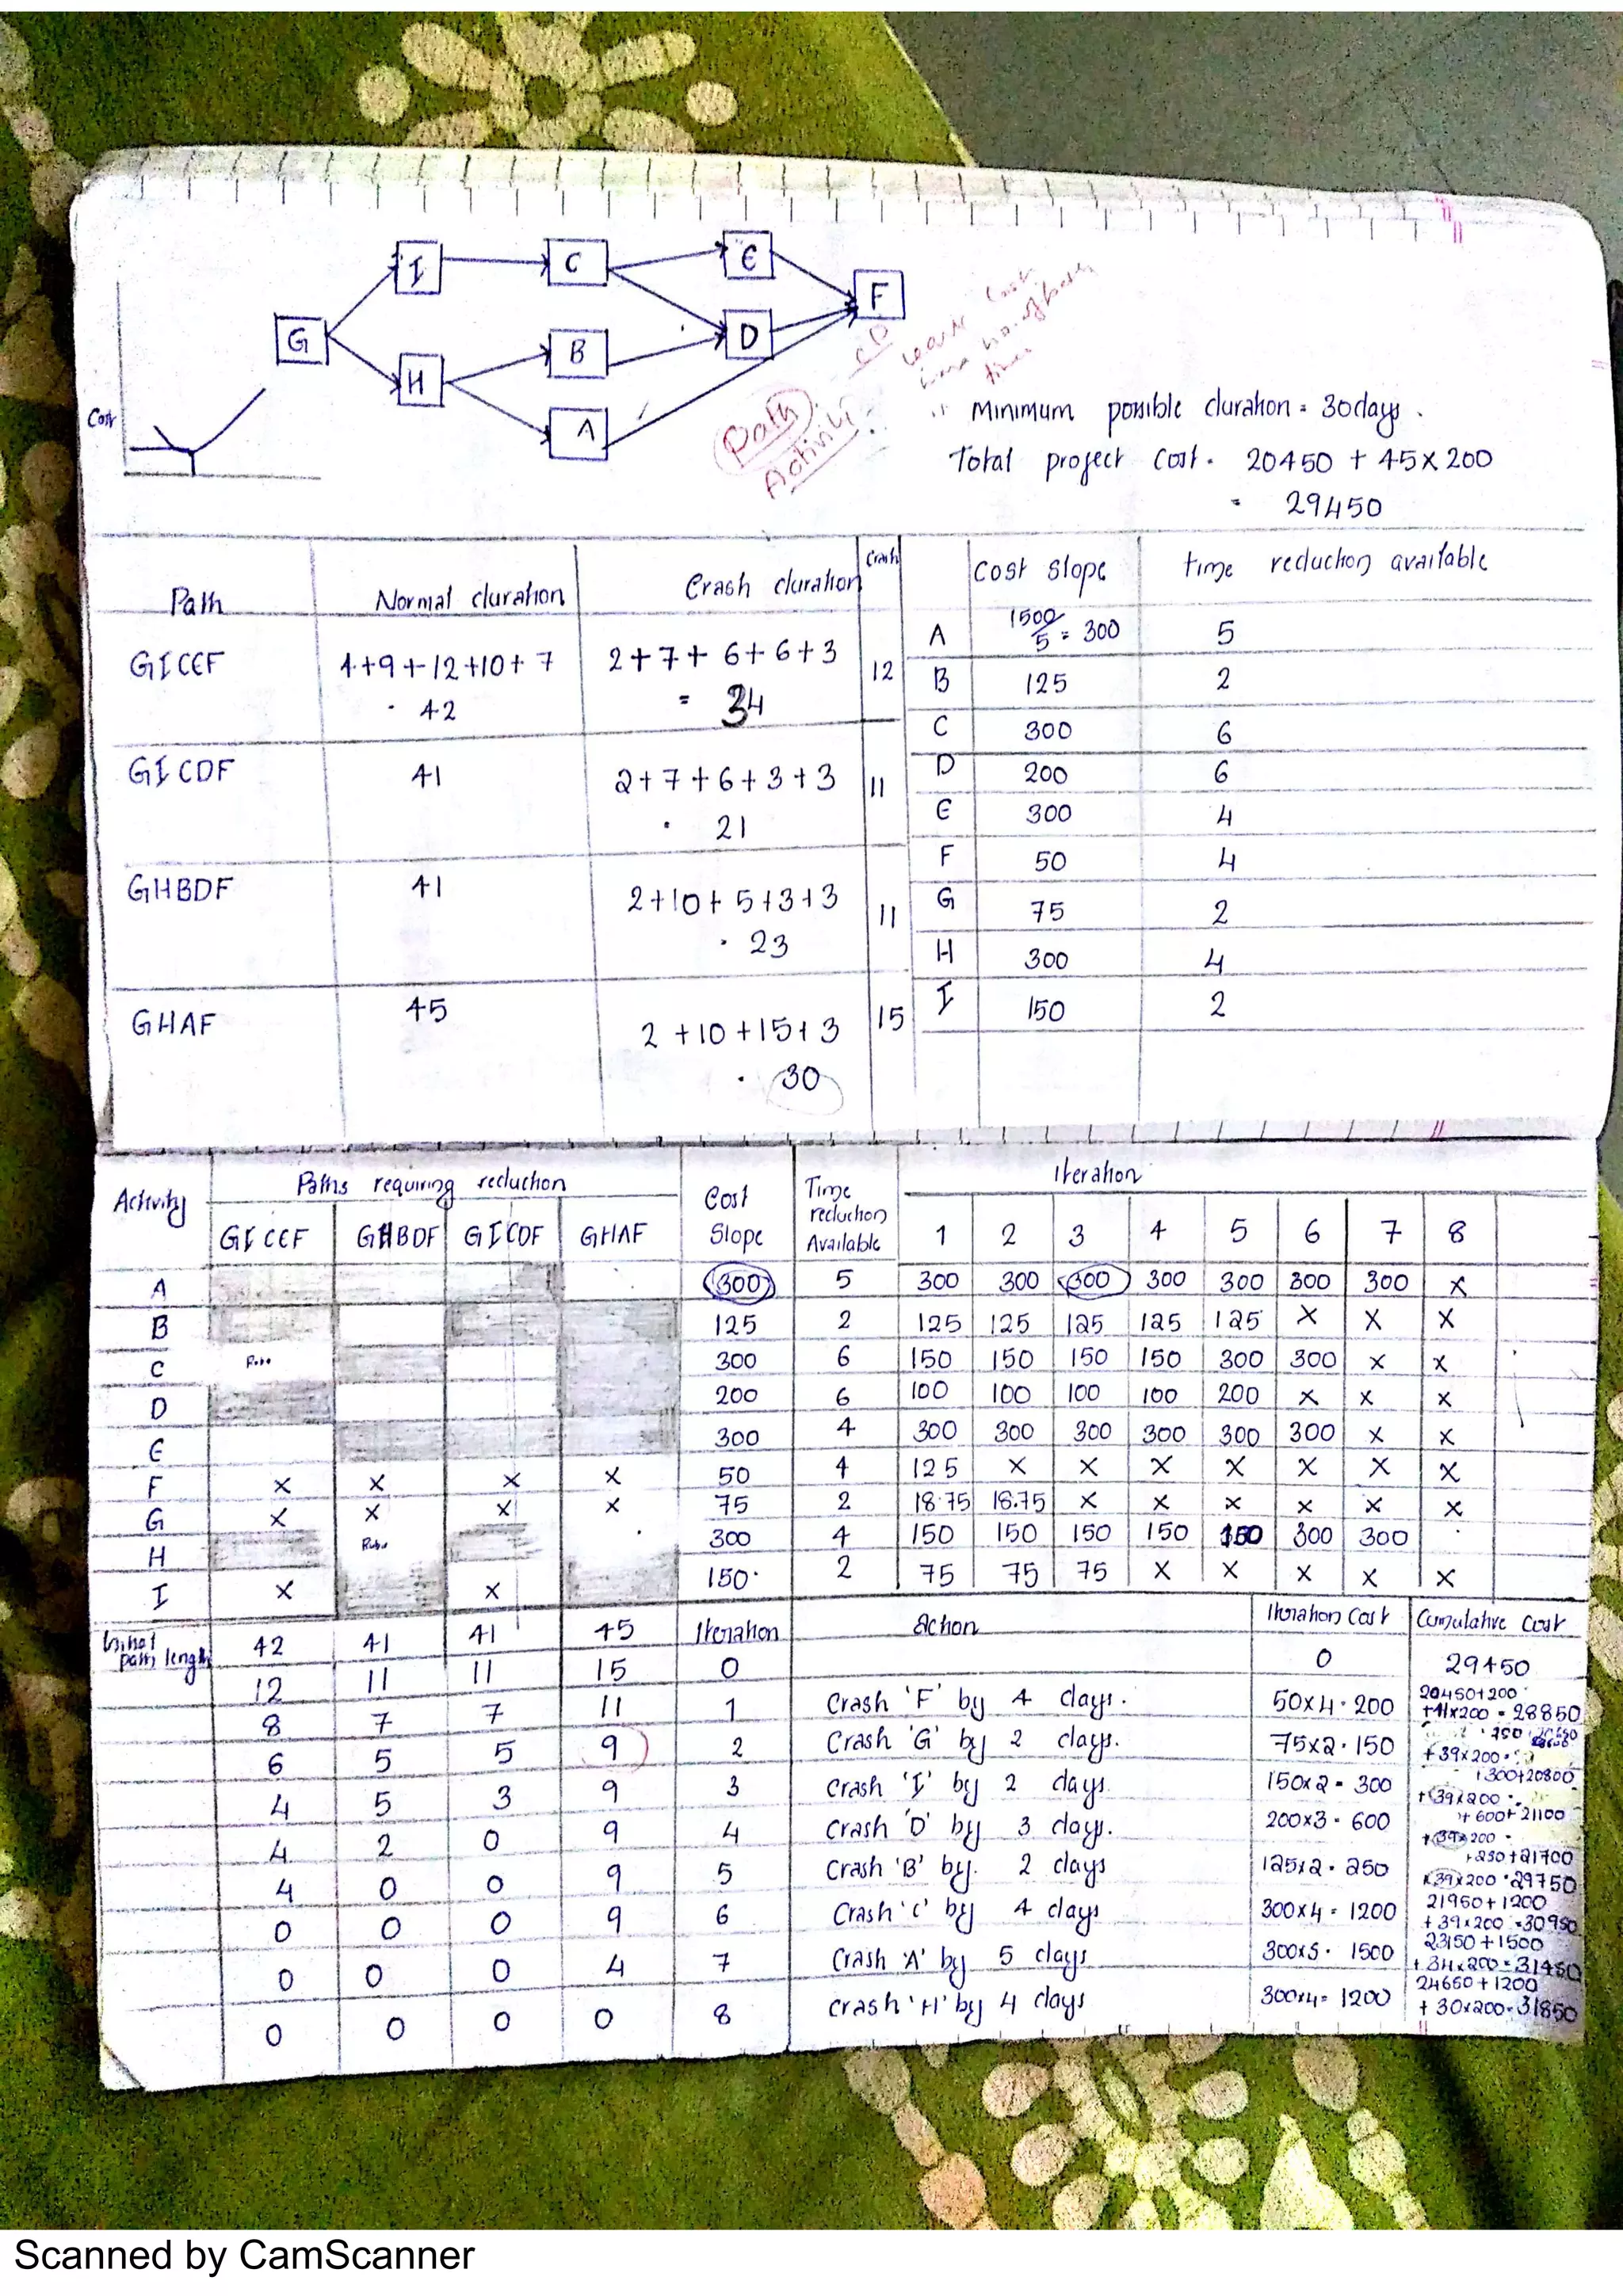 I C E
G F
B D
H
A
Cost
Path
Activity
Minimum possible duration = 30days.
Total project cost. 20450 + 45 x 200
= 29450
Path Normal duration Crash duration Crash Cost slope time reduction available
GICEF 4+9+12+10+7 2+7+6+6+3 12
· 42 = 34
GICDF 41 2+7+6+3+3 11
· 21
GHBDF 41 2+10+5+3+3 11
· 23
GHAF 45 2+10+15+3 15
· 30
A 1500/5 = 300 5
B 125 2
C 300 6
D 200 6
E 300 4
F 50 4
G 75 2
H 300 4
I 150 2
Activity Paths requiring reduction Cost Slope Time reduction Available Iteration
GICEF GHBDF GICDF GHAF 1 2 3 4 5 6 7 8
A 300 5 300 300 300 300 300 300 300 x
B 125 2 125 125 125 125 125 x x x
C 300 6 150 150 150 150 300 300 x x
D 200 6 100 100 100 100 200 x x x
E 300 4 300 300 300 300 300 300 x x
F x x x x 50 4 125 x x x x x x x
G x x x x 75 2 18.75 18.75 x x x x x x
H 300 4 150 150 150 150 150 300 300
I x x 150. 2 75 75 75 x x x x x
path length 42 41 41 45 Iteration Action Iteration Cost Cumulative Cost
12 11 11 15 0 0 29450
8 7 7 11 1 Crash 'F' by 4 days. 50x4 · 200 20450+200 +41x200 = 28850
6 5 5 9 2 Crash 'G' by 2 days. 75x2 · 150 +39x200
4 5 3 9 3 Crash 'I' by 2 days 150x2 = 300 300+20800 +39x200
4 2 0 9 4 Crash 'D' by 3 days. 200x3 · 600 + 600+21100 +39x200
4 0 0 9 5 Crash 'B' by. 2 days 125x2 · 250 +250+21700 +39x200 · 29750
0 0 0 9 6 Crash 'C' by 4 days 300x4 = 1200 21950+1200 +39x200 =30950
0 0 0 4 7 Crash 'A' by 5 days 300x5 · 1500 23150+1500 +34x200=31450
0 0 0 0 8 Crash 'H' by 4 days 300x4= 1200 24650+1200 +30x200=31850
Scanned by CamScanner